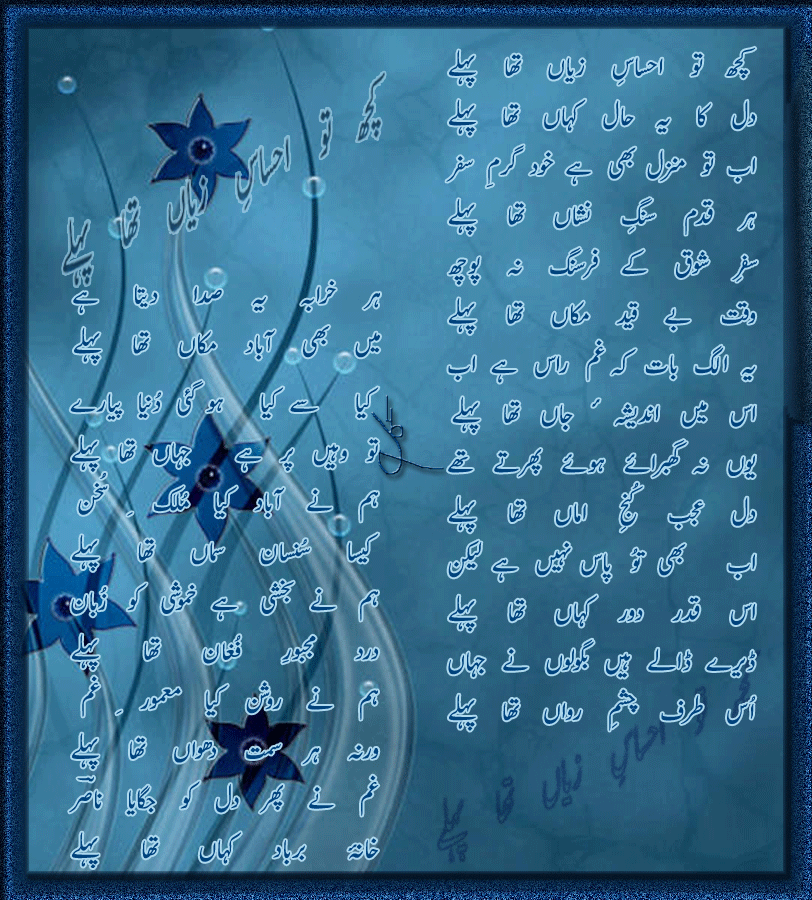 کچھ تو احساسِ زیاں تھا پہلے
دل کا یہ حال کہاں تھا پہلے
اب تو منزل بھی ہے خود گرمِ سفر
ہر قدم سنگِ نشاں تھا پہلے
سفرِ شوق کے فرسنگ نہ پوچھ
وقت بے قید مکاں تھا پہلے
یہ الگ بات کہ غم راس ہے اب
اس میں اندیشہ ٔ جاں تھا پہلے
یوں نہ گھبرائے ہوئے پھرتے تھے
دل عجب کُنجِ اماں تھا پہلے
اب بھی تُو پاس نہیں ہے لیکن
اس قدر دور کہاں تھا پہلے
ڈیرے ڈالے ہیں بگولوں نے جہاں
اُس طرف چشمِ رواں تھا پہلے
کچھ تو احساسِ زیاں تھا پہلے
کچھ تو احساسِ زیاں تھا پہلے
ہر خرابہ یہ صدا دیتا ہے
میں بھی آباد مکاں تھا پہلے
کیا سے کیا ہو گئی دُنیا پیارے
تو وہیں پر ہے جہاں تھا پہلے
ہم نے آباد کیا مُلک ِ سُخن
کیسا سُنسان سماں تھا پہلے
ہم نے بخشی ہے خموشی کو زُبان
درد مجبورِ فُغان تھا پہلے
ہم نے روشن کیا معمور ِ غم
ورنہ ہر سمت دھواں تھا پہلے
غم نے پھر دل کو جگایا ناصرؔ
خانۂ برباد کہاں تھا پہلے